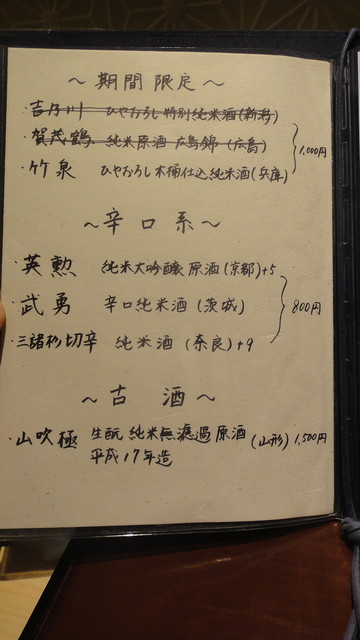 ～期間限定～
・吉乃川 ひやおろし 特別純米酒(新潟)
・賀茂鶴 純米原酒 広島錦 (広島)
・竹泉 ひやおろし 木桶仕込 純米酒(兵庫)
1,000円
～辛口系～
・英勲 純米大吟醸 原酒(京都)+5
・武勇 辛口純米酒 (茨城)
・三諸杉切辛 純米酒 (奈良)+9
800円
～古酒～
・山吹極 生酛 純米無濾過原酒 (山形) 1,500円
平成17年造